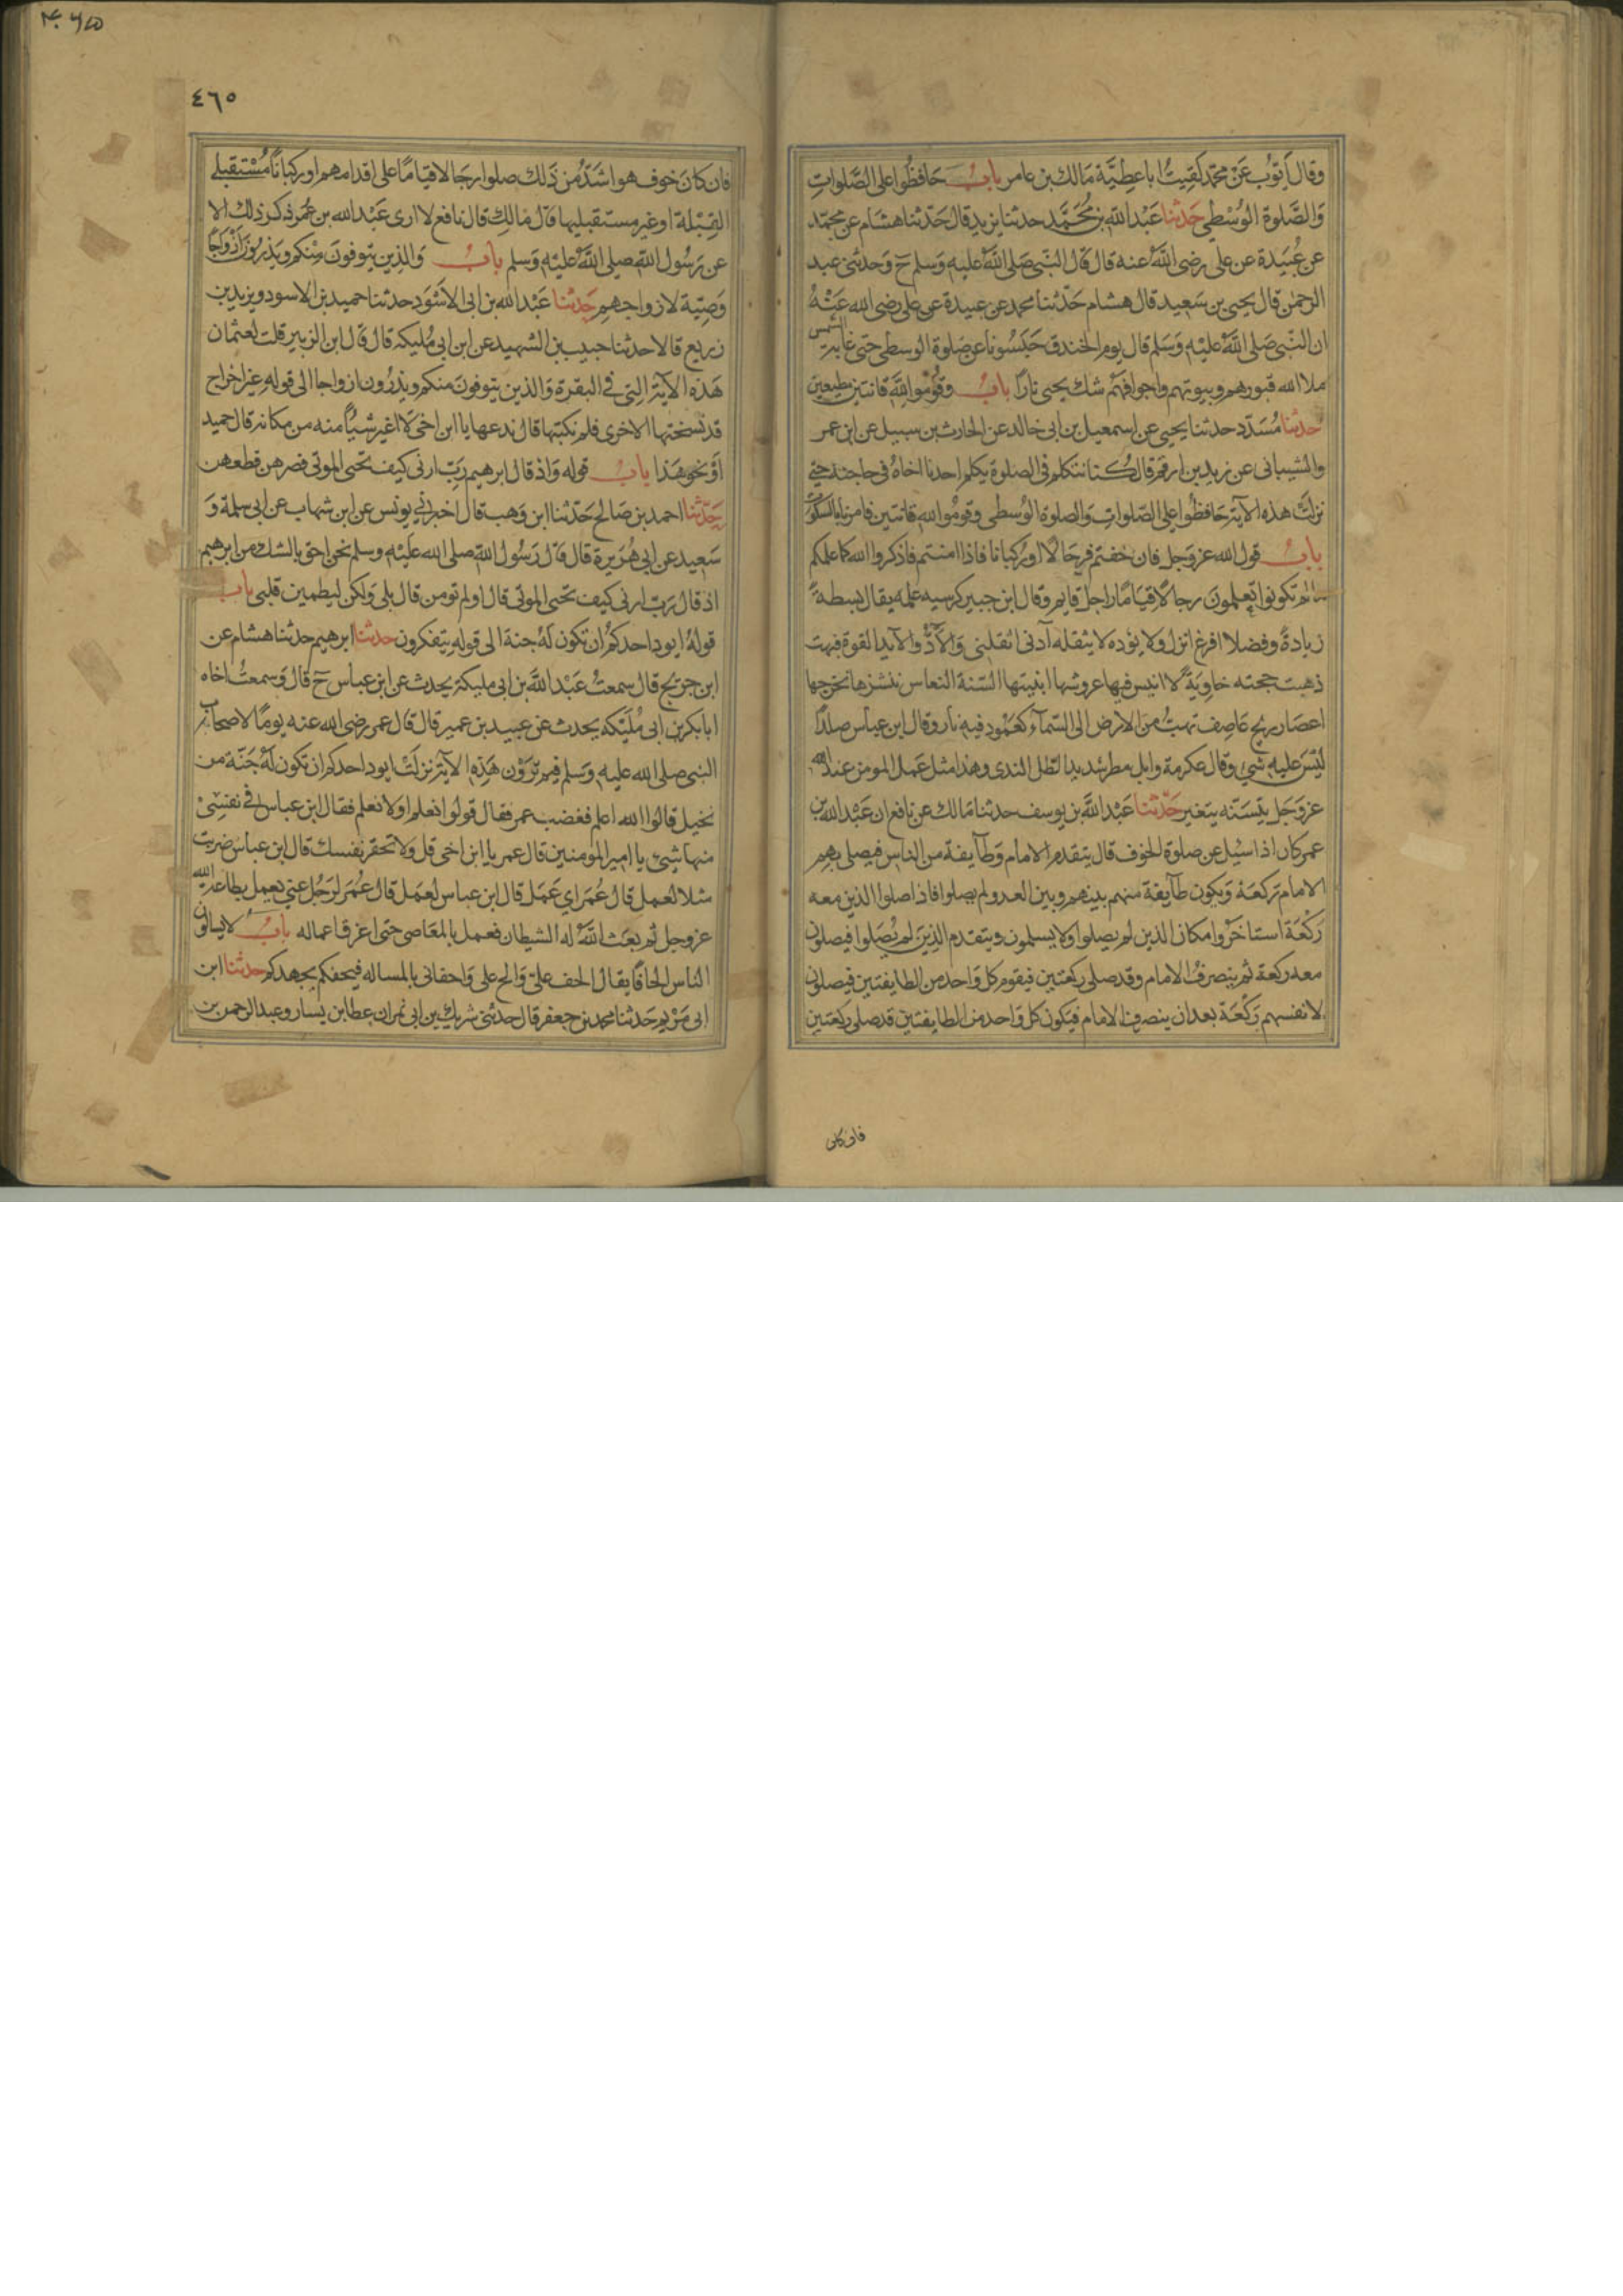 وقال ايوب عن محمد لقيت ابا عطية مالك بن عامر باب حافظوا على الصلوات
والصلوة الوسطى حدثنا عبد الله بن محمد حدثنا يزيد قال حدثنا هشام عن محمد
عن عبيدة عن على رضى الله عنه قال قال النبى صلى الله عليه وسلم ح وحدثنى عبد
الرحمن قال يحيى بن سعيد قال هشام حدثنا محمد عن عبيدة عن على رضى الله عنه
ان النبى صلى الله عليه وسلم قال يوم الخندق حبسونا عن صلوة الوسطى حتى غابت الشمس
ملا الله قبورهم وبيوتهم واجوافهم شك يحيى نارا باب وقوموا لله قانتين مطيعين
حدثنا مسدد حدثنا يحيى عن اسمعيل بن ابى خالد عن الحارث بن سبيل عن ابى عمر
والشيبانى عن زيد بن ارقم قال كنا نتكلم فى الصلوة يكلم احدنا اخاه فى حاجته حتى
نزلت هذه الآية حافظوا على الصلوات والصلوة الوسطى وقوموا لله قانتين فامرنا بالسكوت
باب قول الله عز وجل فان خفتم فرجالا او ركبانا فاذا امنتم فاذكروا الله كما علمكم
ما لم تكونوا تعلمون رجالا قياما راجل قايم وقال ابن جبير كرسيه علمه يقال بسطة
زيادة وفضلا افرغ انزل ولا يؤده لا يثقله آدنى اثقلنى والآد والآيد القوة فبهت
ذهبت حجته خاوية لا انيس فيها عروشها ابنيتها السنة النعاس ننشزها نخرجها
اعصار ريح عاصف تهب من الارض الى السماء كعمود فيه نار وقال ابن عباس صلدا
ليس عليه شىء وقال عكرمة وابل مطر شديد الطل الندى وهذا مثل عمل المومن عند الله
عز وجل يتسنه يتغير حدثنا عبد الله بن يوسف حدثنا مالك عن نافع ان عبد الله بن
عمر كان اذا سئيل عن صلوة الخوف قال يتقدم الامام وطآيفة من الناس فيصلى بهم
الامام ركعة وتكون طآيفة منهم بينهم وبين العدو لم يصلوا فاذا صلوا الذين معه
ركعة استاخروا مكان الذين لم يصلوا ولا يسلمون ويتقدم الذين لم يصلوا فيصلون
معه ركعة ثم ينصرف الامام وقد صلى ركعتين فيقوم كل واحد من الطايفتين فيصلون
لانفسهم ركعة بعد ان ينصرف الامام فيكون كل واحد من الطايفتين قد صلى ركعتين
فان كان
٤٦٥
فان كان خوف هو اشد من ذلك صلوا رجالا قياما على اقدامهم او ركبانا مستقبلى
القبلة او غير مستقبليها قال مالك قال نافع لا ارى عبد الله بن عمر ذكر ذلك الا
عن رسول الله صلى الله عليه وسلم باب والذين يتوفون منكم ويذرون ازواجا
وصية لازواجهم حدثنا عبد الله بن ابى الاسود حدثنا حميد بن الاسود ويزيد بن
زريع قالا حدثنا حبيب بن الشهيد عن ابن ابى مليكه قال قال ابن الزبير قلت لعثمان
هذه الآية التى فى البقرة والذين يتوفون منكم ويذرون ازواجا الى قوله غير اخراج
قد نسختها الاخرى فلم تكتبها قال ندعها يا ابن اخى لا اغير شيئا منه من مكانه قال حميد
او نحو هذا باب قوله واذ قال ابرهيم رب ارنى كيف تحيى الموتى فصرهن قطعهن
حدثنا احمد بن صالح حدثنا ابن وهب قال اخبرنى يونس عن ابن شهاب عن ابى سلمة و
سعيد عن ابى هريرة قال قال رسول الله صلى الله عليه وسلم نحن احق بالشك من ابرهيم
اذ قال رب ارنى كيف تحيى الموتى قال اولم تومن قال بلى ولكن ليطمين قلبى باب
قوله ايود احدكم ان تكون له جنة الى قوله يتفكرون حدثنا ابرهيم حدثنا هشام عن
ابن جريج قال سمعت عبد الله بن ابى مليكة يحدث عن ابن عباس ح قال وسمعت اخاه
ابا بكر بن ابى مليكه يحدث عن عبيد بن عمير قال قال عمر رضى الله عنه يوما لاصحاب
النبى صلى الله عليه وسلم فيم ترون هذه الآية نزلت ايود احدكم ان تكون له جنة من
نخيل قالوا الله اعلم فغضب عمر فقال قولوا نعلم او لا نعلم فقال ابن عباس فى نفسى
منها شىء يا امير المومنين قال عمر يا ابن اخى قل ولا تحقر نفسك قال ابن عباس ضربت
مثلا لعمل قال عمر اى عمل قال ابن عباس لعمل قال عمر لرجل غنى يعمل بطاعة الله
عز وجل ثم بعث الله له الشيطان فعمل بالمعاصى حتى اغرق اعماله باب لا يسالون
الناس الحافا يقال الحف على والح على واحفانى بالمساله فيحفكم يجهدكم حدثنا ابن
ابى مريم حدثنا محمد بن جعفر قال حدثنى شريك بن ابى نمر ان عطا بن يسار وعبد الرحمن بن